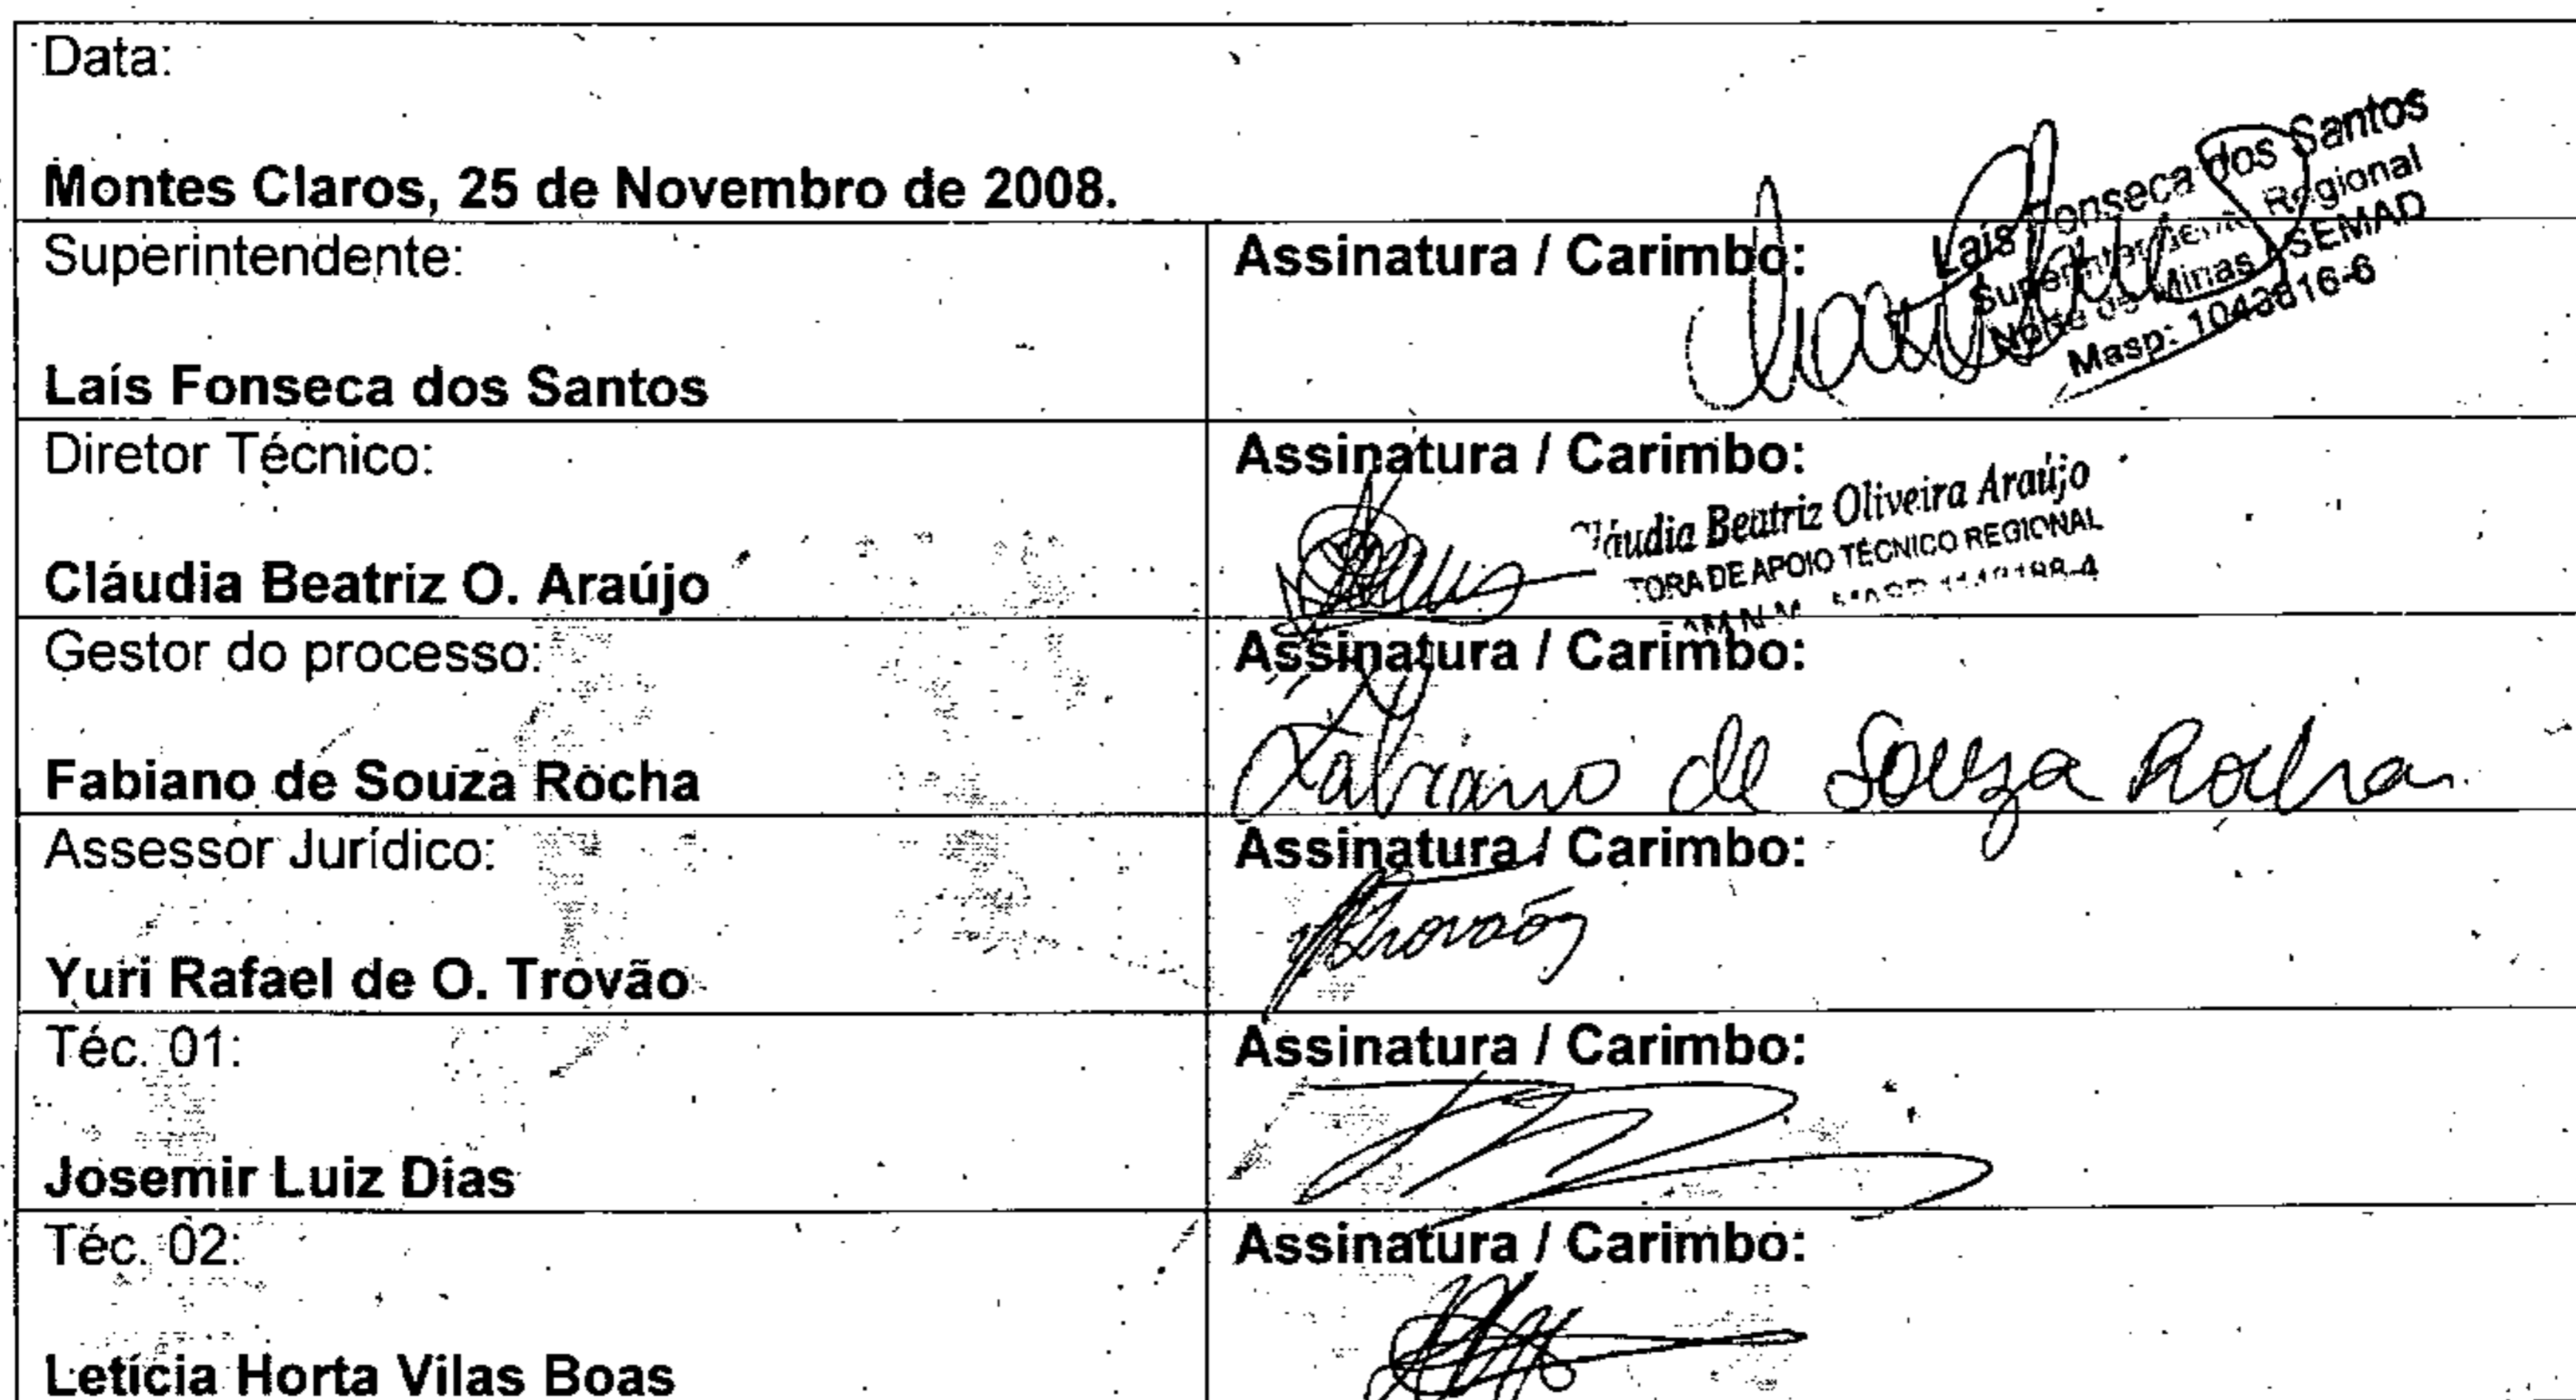 Data:
Montes Claros, 25 de Novembro de 2008.
Superintendente:
Laís Fonseca dos Santos
Assinatura / Carimbo:
Laís Fonseca dos Santos
Superintendente Regional
Norte de Minas SEMAD
Masp:
Diretor Técnico:
Cláudia Beatriz O. Araújo
Assinatura / Carimbo:
Cláudia Beatriz Oliveira Araújo
TORA DE APOIO TÉCNICO REGIONAL
MASP
Gestor do processo:
Fabiano de Souza Rocha
Assinatura / Carimbo:
Fabiano de Souza Rocha
Assessor Jurídico:
Yuri Rafael de O. Trovão
Assinatura / Carimbo:
Trovão
Téc. 01:
Josemir Luiz Dias
Assinatura / Carimbo:
Téc. 02:
Letícia Horta Vilas Boas
Assinatura / Carimbo: